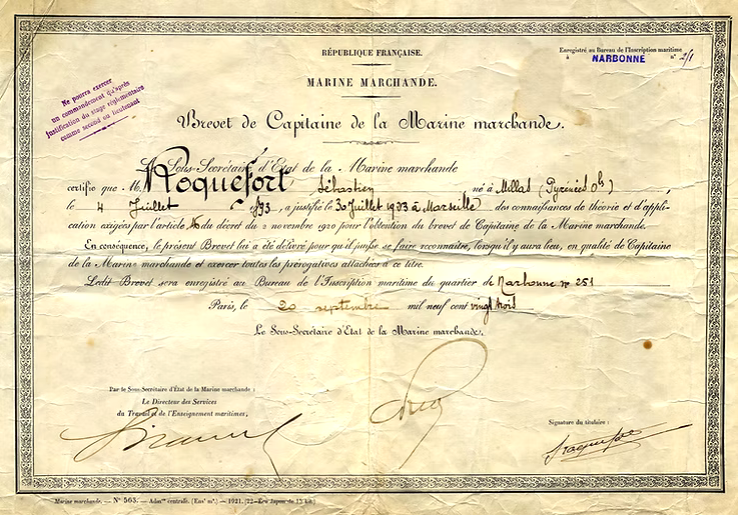 RÉPUBLIQUE FRANÇAISE.
MARINE MARCHANDE.
Enregistré au Bureau de l'Inscription maritime
à NARBONNE n° 251
Ne pourra exercer
un commandement qu'après
justification du stage réglementaire
comme second ou lieutenant
Brevet de Capitaine de la Marine marchande.
Le Sous-Secrétaire d'État de la Marine marchande
certifie que M. Roquefort Sébastien né à Millas (Pyrénées Oles)
le 4 Juillet 1893, a justifié le 30 Juillet 1923 à Marseille des connaissances de théorie et d'appli-
cation exigées par l'article 16 du décret du 2 novembre 1920 pour l'obtention du brevet de Capitaine de la Marine marchande.
En conséquence, le présent Brevet lui a été délivré pour qu'il puisse se faire reconnaître, lorsqu'il y aura lieu, en qualité de Capitaine
de la Marine marchande et exercer toutes les prérogatives attachées à ce titre.
Ledit Brevet sera enregistré au Bureau de l'Inscription maritime du quartier de Narbonne n° 251
Paris, le 20 septembre mil neuf cent vingt trois
Le Sous-Secrétaire d'État de la Marine marchande,
Par le Sous-Secrétaire d'État de la Marine marchande :
Le Directeur des Services
du Travail et de l'Enseignement maritimes,
Signature du titulaire :
Roquefort
Marine marchande. — N° 563. — Adm°n centrale. — 1921.